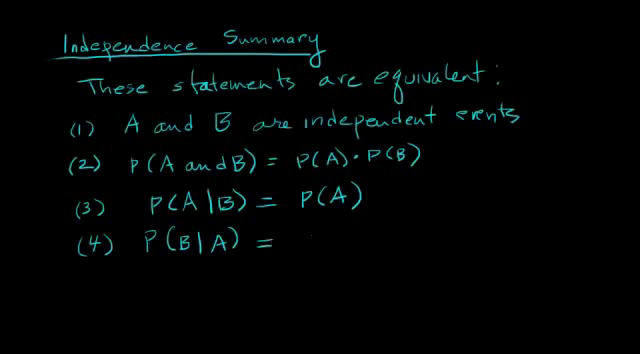 Independence Summary
These statements are equivalent:
(1) A and B are independent events
(2) P(A and B) = P(A) · P(B)
(3) P(A|B) = P(A)
(4) P(B|A) =